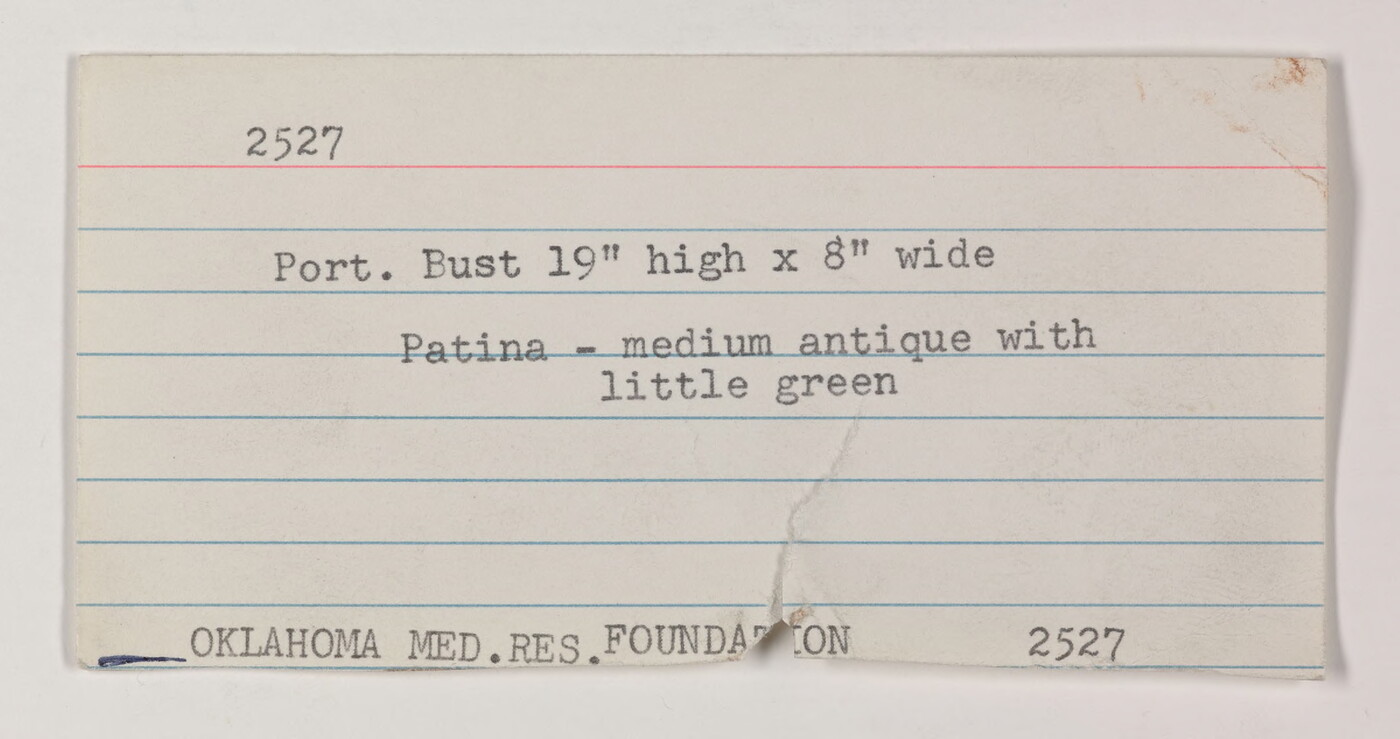 2527
Port. Bust 19" high x 8" wide
Patina - medium antique with
little green
OKLAHOMA MED.RES.FOUNDATION 2527